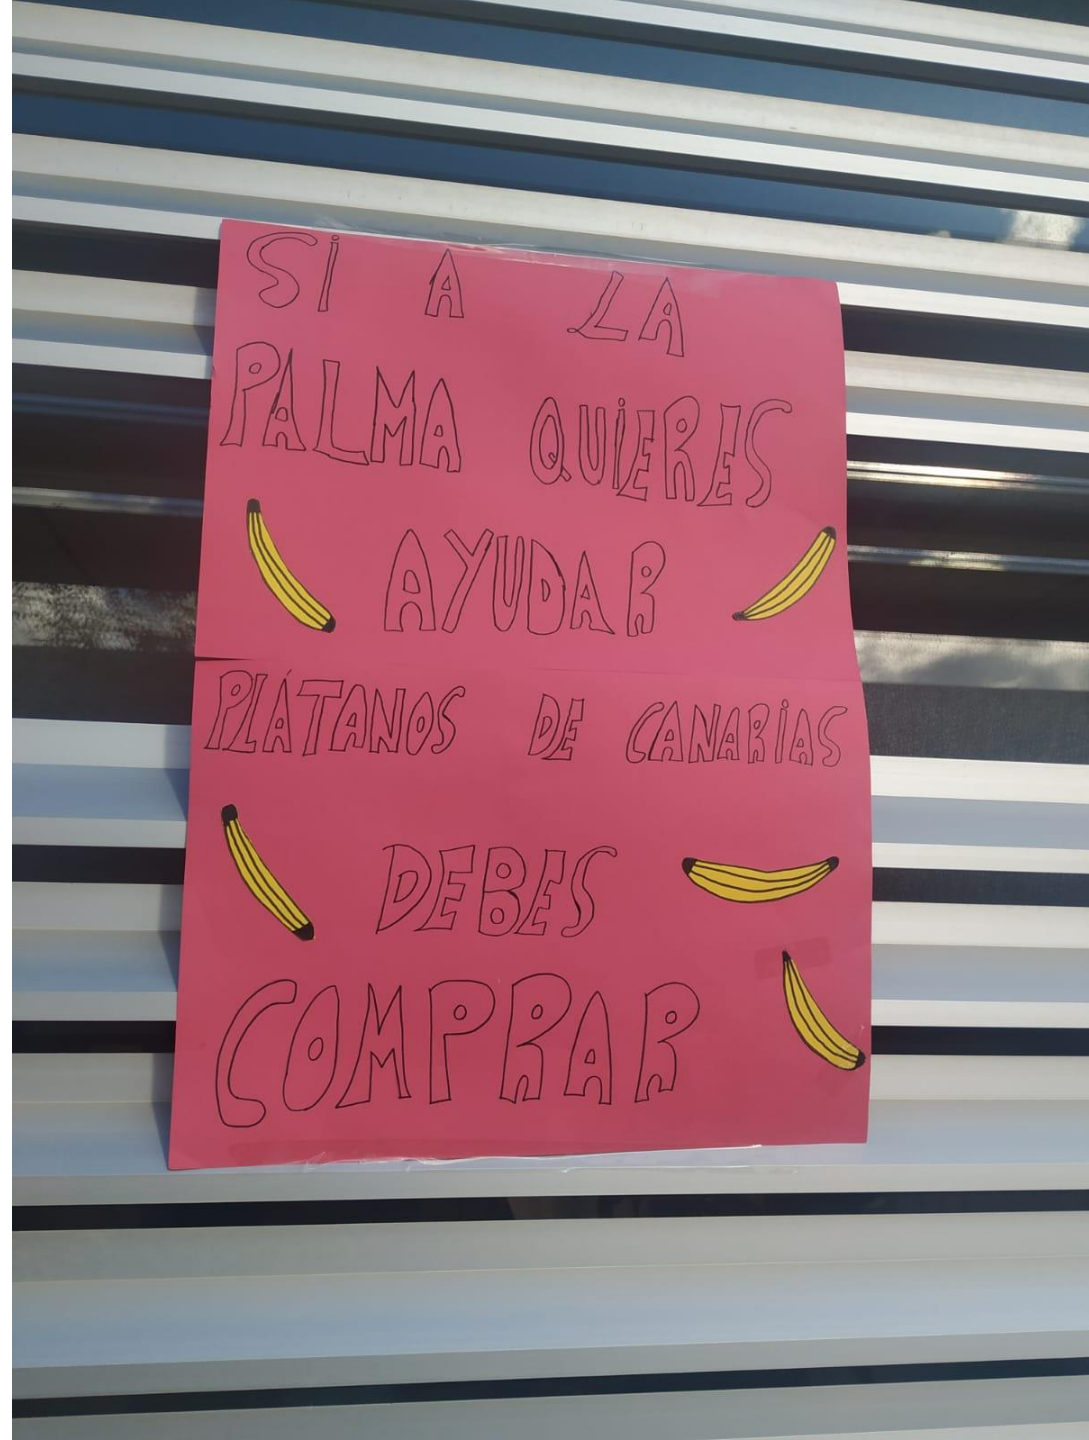 Si A LA
PALMA QUiERES
AYUDAR
PLÁTANOS DE CANARiAS
DEBES
COMPRAR